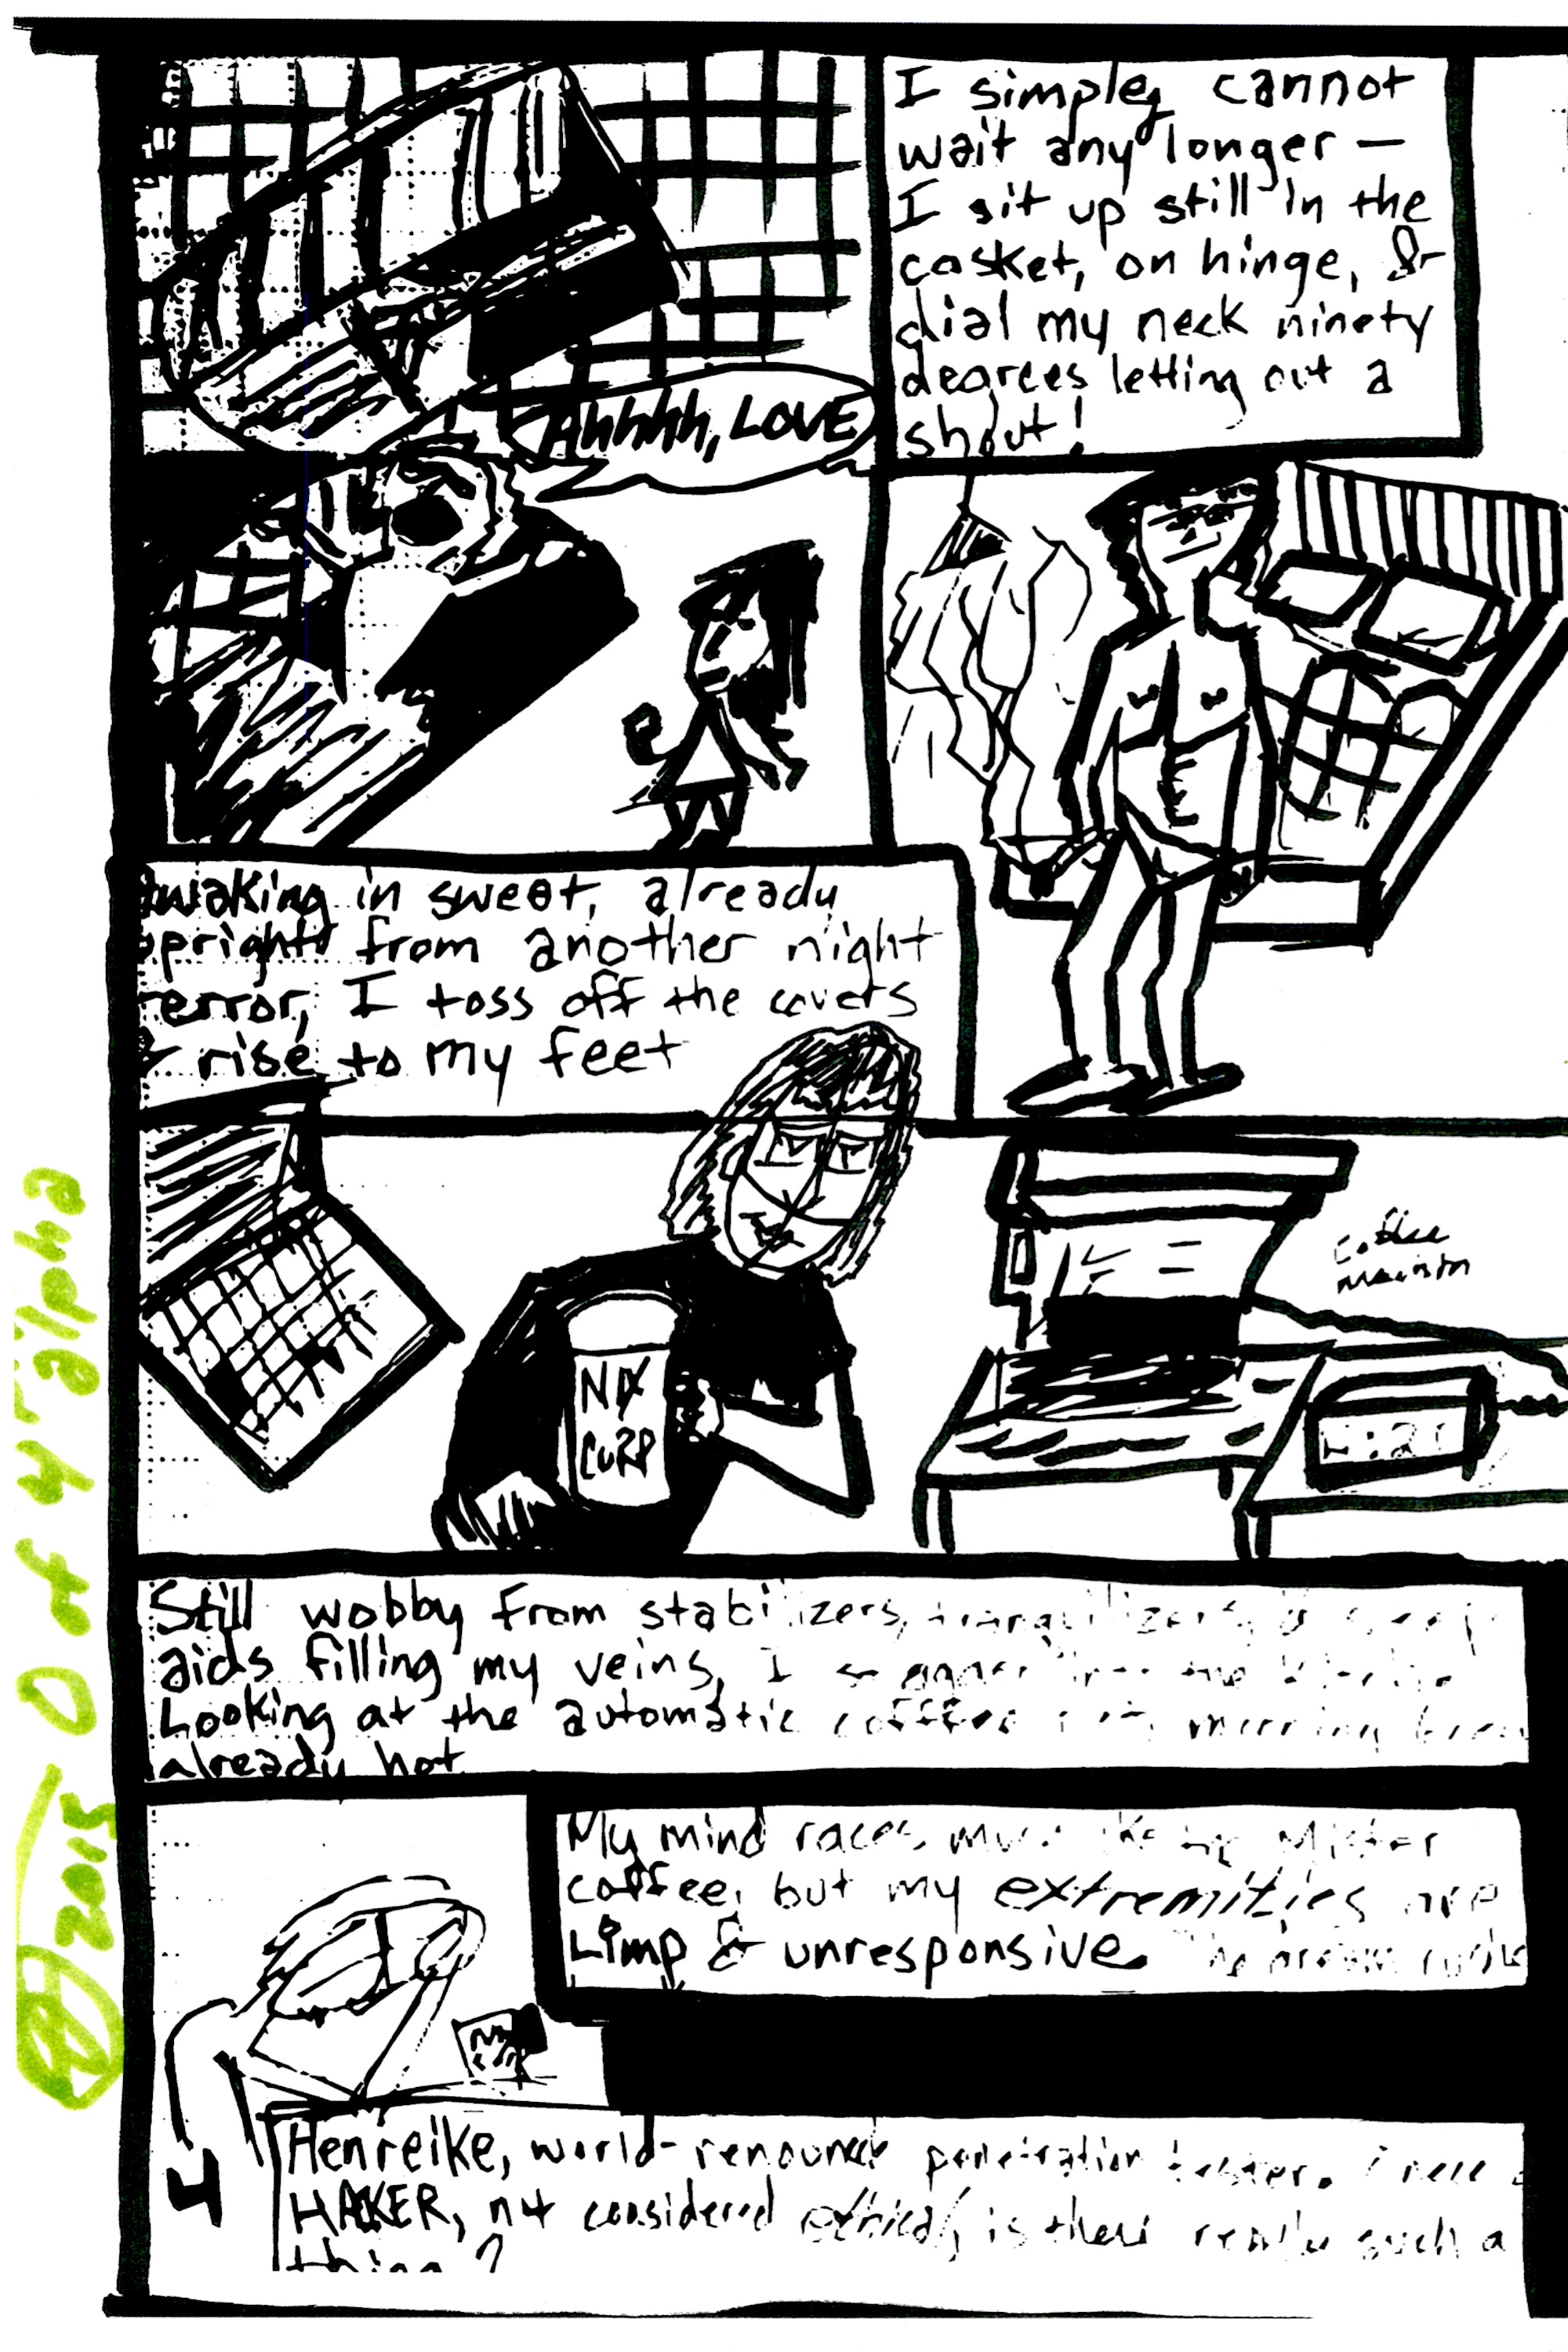 I simpley cannot
wait any longer —
I sit up still in the
casket, on hinge, &
dial my neck ninety
degrees letting out a
shout!
Ahhhh, LOVE
Awaking in sweat, already
upright from another night
terror, I toss off the covers
& rise to my feet
NIX
CORP
coffee
4:21
Still wobby from stabilizers, tranquilizers, & sleep
aids filling my veins, I
Looking at the automatic coffee pot, morning brew
already hot
My mind races much like the Mister
coffee, but my extremities are
Limp & unresponsive. The
Henreike, world-renouned penetration tester.
HAKER, not considered ethical, is there really such a
thing?
4
0 of 4 alpha
2015